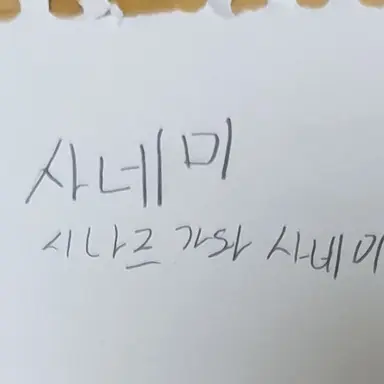 사네미
시나즈가와 사네미